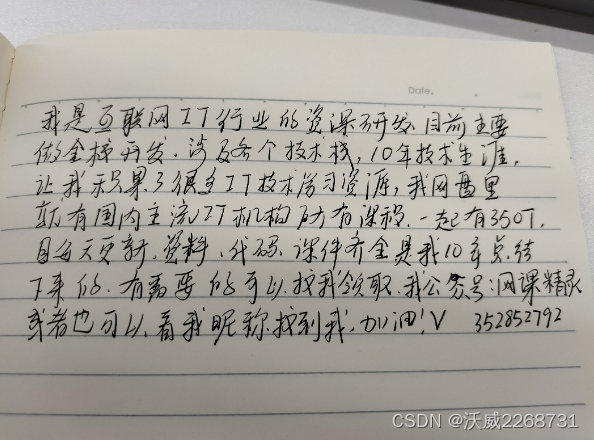 Date.
我是互联网IT行业的资深研发、目前主要
做全栈开发.涉及各个技术栈,10年技术生涯.
让我积累了很多IT技术学习资源,我网盘里
就有国内主流IT机构所有课程.一起有350T.
且每天更新,资料、代码、课件齐全是我10年总结
下来的.有需要的可以找我领取.我公众号:网课精灵
或者也可以看我昵称找到我.加油!V 352852792
CSDN @沃威2268731